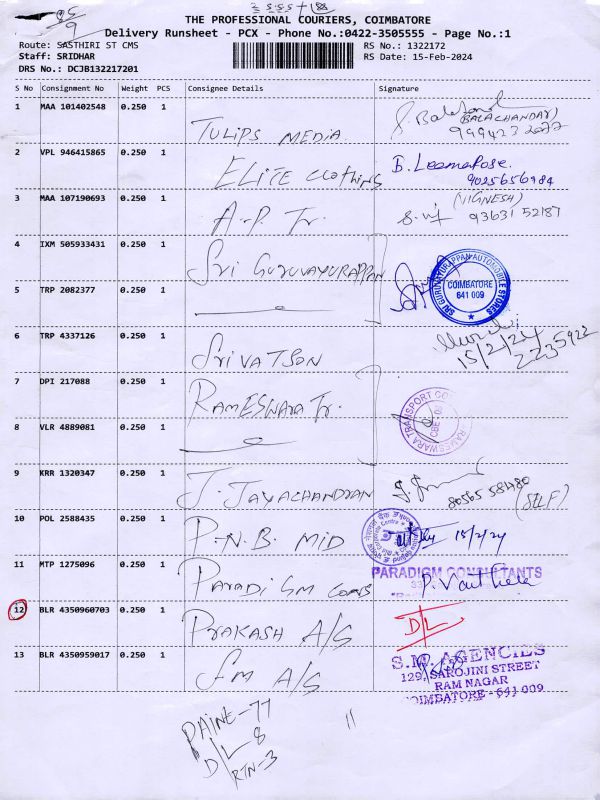 3555+188
05/9
THE PROFESSIONAL COURIERS, COIMBATORE
Delivery Runsheet - PCX - Phone No.:0422-3505555 - Page No.:1
Route: SASTHIRI ST CMS
RS No.: 1322172
Staff: SRIDHAR
RS Date: 15-Feb-2024
DRS No.: DCJB132217201
S No Consignment No Weight PCS Consignee Details Signature
1 MAA 101402548 0.250 1 TULIPS MEDIA
(BALACHANDAR)
2 VPL 946415865 0.250 1 ELITE Clothings B. Leemarose.
9025656984
3 MAA 107190693 0.250 1 A.P. Tr. (VIGNESH)
93631 52187
4 IXM 505933431 0.250 1 Sri GURUVAYURAPPAN
SRI GURUVAYURAPPAN AUTOMOBILE STORES
COIMBATORE
641 009
5 TRP 2082377 0.250 1
6 TRP 4337126 0.250 1 SRIVATSON
15/2/24
2235922
7 DPI 217088 0.250 1 RAMESWARA Tr.
RAMESWARA TRANSPORT CO
CBE
8 VLR 4889081 0.250 1
9 KRR 1320347 0.250 1 J. JAYACHANDRAN
80565 58480
(SELF)
10 POL 2588435 0.250 1 P.N.B. MID 15/2/24
11 MTP 1275096 0.250 1 PARADIGM Cons
PARADIGM CONSULTANTS
12 BLR 4350960703 0.250 1 PRAKASH A/S D/L
13 BLR 4350959017 0.250 1 SM A/S
S.M. AGENCIES
129, SAROJINI STREET
RAM NAGAR
COIMBATORE - 641 009
PAINE-77
D/L 8
RTN-3
11